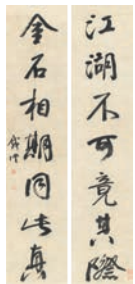 江湖不可竟其際
金石相期同此真